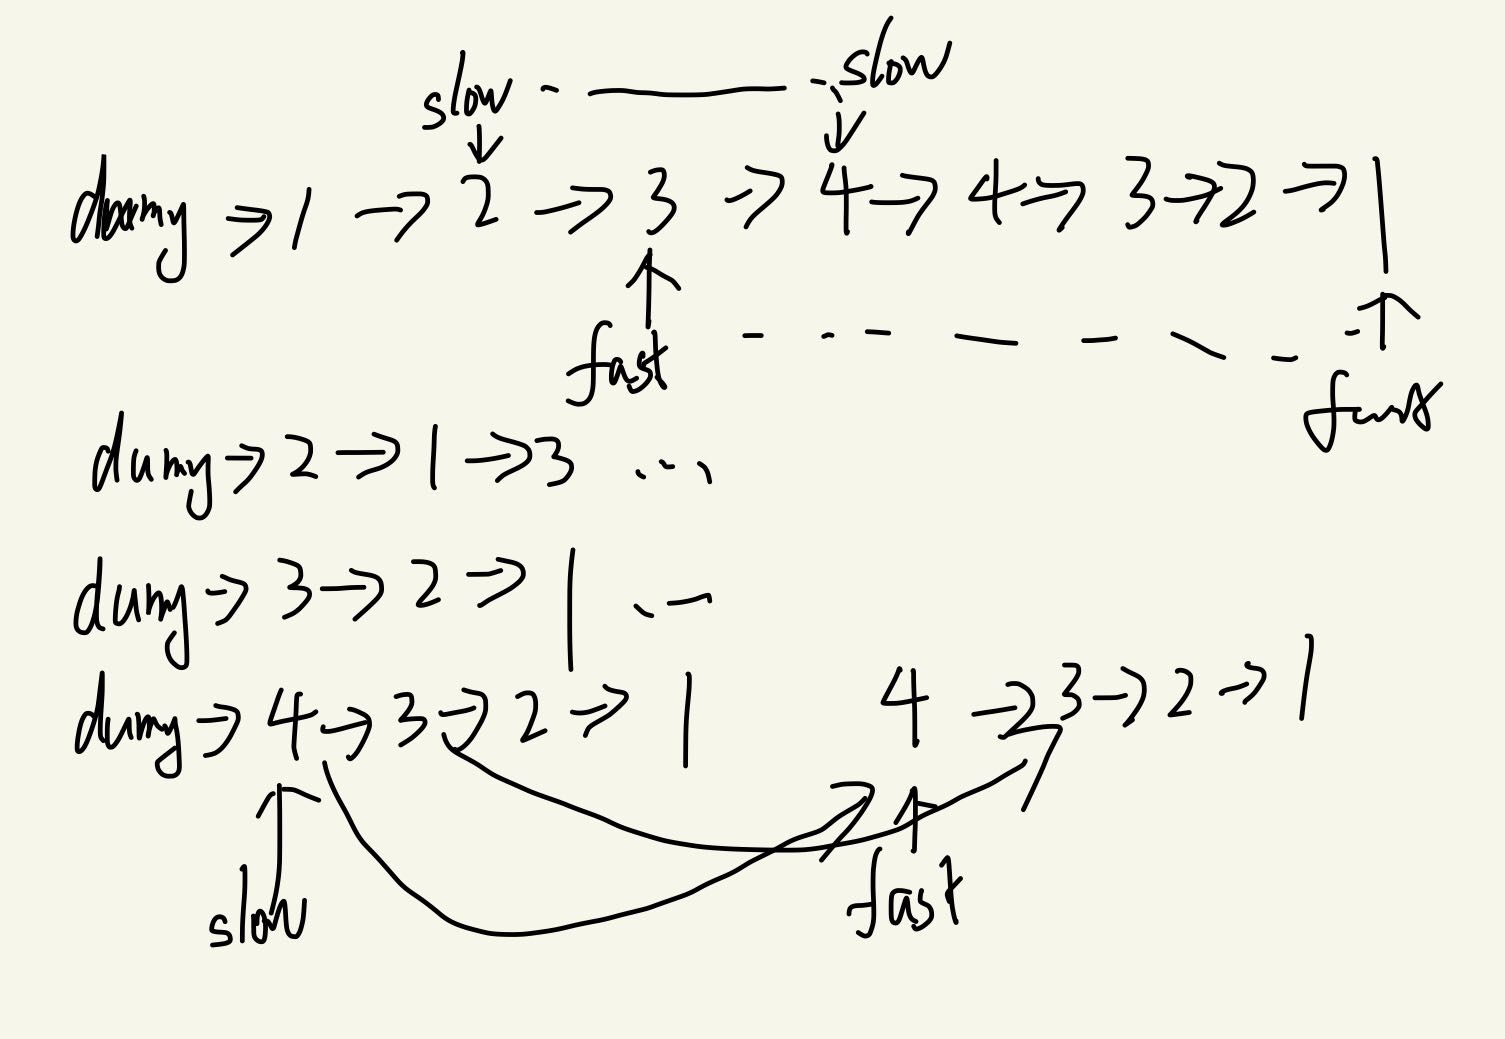 slow slow
dummy → 1 → 2 → 3 → 4 → 4 → 3 → 2 → 1
fast fast
dumy → 2 → 1 → 3 ...
dumy → 3 → 2 → 1 ...
dumy → 4 → 3 → 2 → 1 4 → 3 → 2 → 1
slow fast